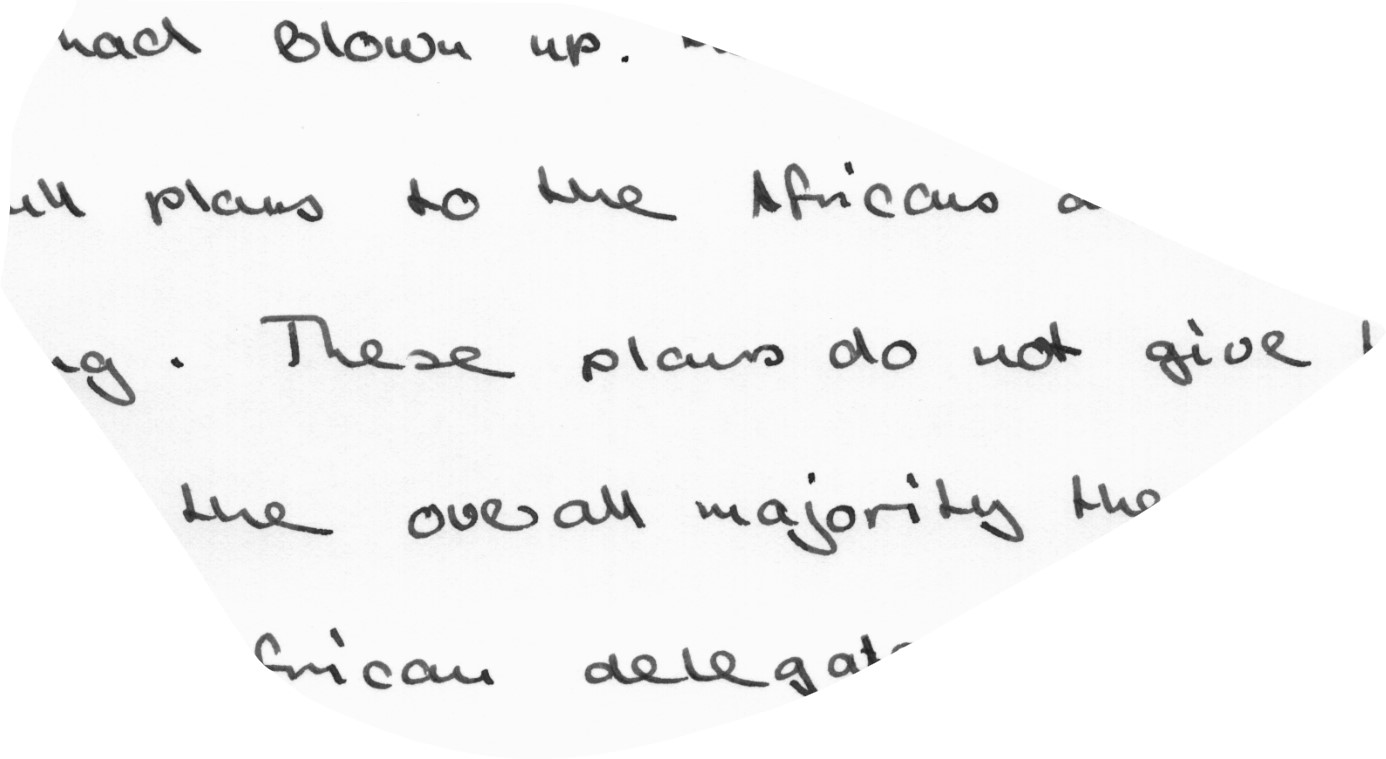 had Blown up.
plans to the Africans
These plans do not give
the overall majority the
delegate